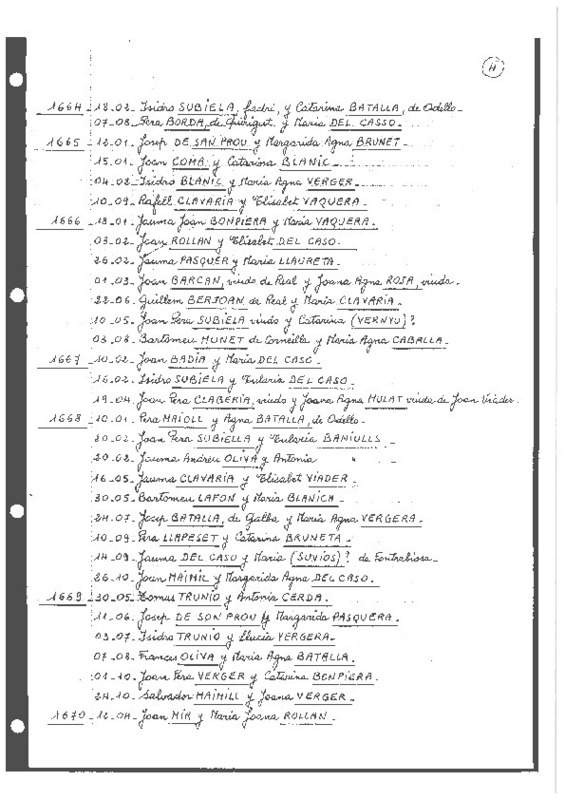 H
1664 - 18-02- Isidro SUBIELA, fadri, y Catarina BATALLA, de Odello-
07-08- Pera BORDA, de Quirigut y Maria DEL CASSO-
1665 - 12-01- Josep DE SAN PROU y Margarida Agna BRUNET-
15-01- Joan COMA y Catarina BLANIC-
04-02- Isidro BLANIC y Maria Agna VERGER-
10-09- Rafell CLAVARIA y Elisabet VAQUERA-
1666 - 18-01- Jauma Joan BONPIERA y Maria VAQUERA-
03-02- Joan ROLLAN y Elisabet DEL CASO-
26-02- Jauma PASQUER y Maria LLAURETA-
01-03- Joan BARCAN, viudo de Real y Joana Agna ROSA, viuda-
22-06- Guillem BERJOAN de Real y Maria CLAVARIA-
10-05- Joan Pera SUBIELA viudo y Catarina (VERNYU)?
03-08- Bartomeu MUNET de Corneilla y Maria Agna CABALLA-
1667 - 10-02- Joan BADIA y Maria DEL CASO-
16-02- Isidro SUBIELA y Eularia DEL CASO-
19-04- Joan Pera CLABERIA, viudo y Joana Agna MULAT viuda de Joan Viader-
1668 - 10-01- Pera MAIOLL y Agna BATALLA, de Odello-
20-02- Joan Pera SUBIELLA y Eularia BANIULLS-
20-02- Jauma Andreu OLIVA y Antonia " -
16-05- Jauma CLAVARIA y Elisabet VIADER-
30-05- Bartomeu LAFON y Maria BLANICH-
24-07- Josep BATALLA, de Galba y Maria Agna VERGERA-
10-09- Pera LLAPESET y Catarina BRUNETA-
14-09- Jauma DEL CASU y Maria (SUVIOS)? de Fontrabiosa-
26-10- Joan MAIMIL y Margarida Agna DEL CASO-
1669 - 30-05- Tomas TRUNIO y Antonia CERDA-
11-06- Josep DE SON PROU y Margarida PASQUERA-
03-07- Isidro TRUNIO y Llucia VERGERA-
07-08- Frances OLIVA y Maria Agna BATALLA-
01-10- Joan Pera VERGER y Catarina BONPIERA-
24-10- Salvador MAIMILL y Joana VERGER-
1670 - 12-04- Joan MIR y Maria Joana ROLLAN-